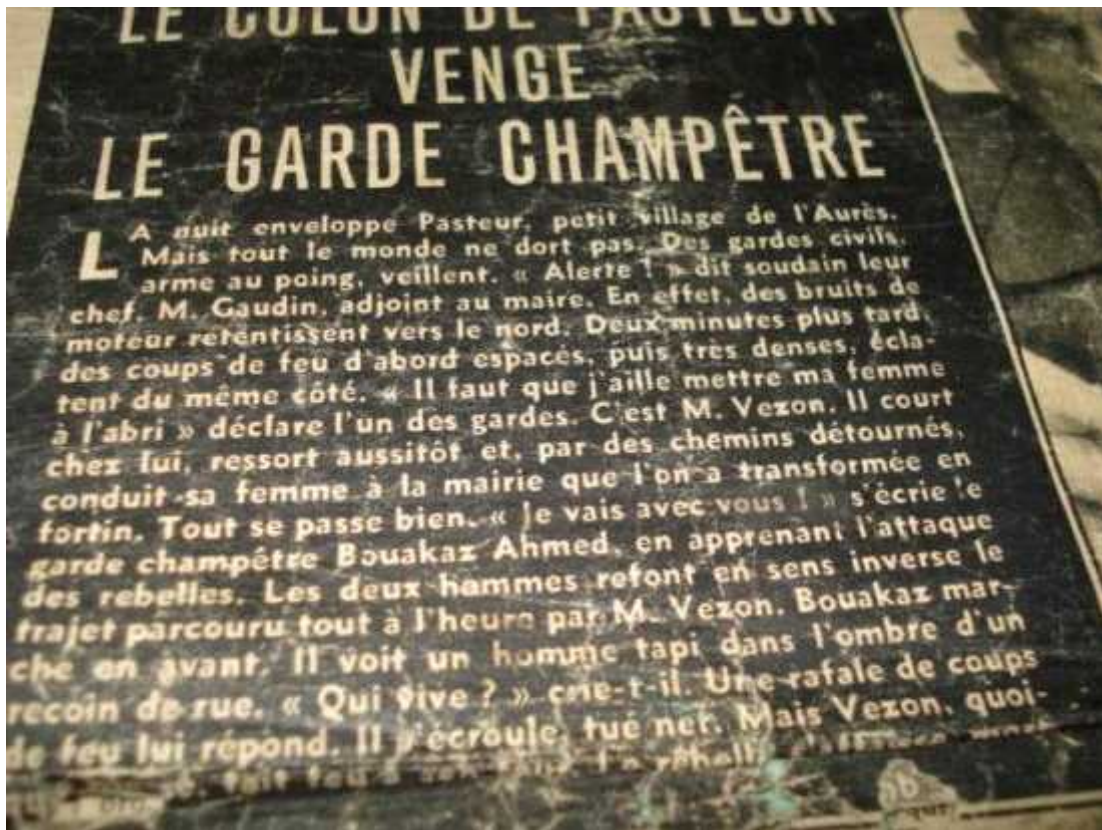 LE COLON DE PASTEUR
VENGE
LE GARDE CHAMPÊTRE
LA nuit enveloppe Pasteur, petit village de l'Aurès.
Mais tout le monde ne dort pas. Des gardes civils,
arme au poing, veillent. « Alerte ! » dit soudain leur
chef, M. Gaudin, adjoint au maire. En effet, des bruits de
moteur retentissent vers le nord. Deux minutes plus tard,
des coups de feu d'abord espacés, puis très denses, écla-
tent du même côté. « Il faut que j'aille mettre ma femme
à l'abri » déclare l'un des gardes. C'est M. Vezon. Il court
chez lui, ressort aussitôt et, par des chemins détournés,
conduit sa femme à la mairie que l'on a transformée en
fortin. Tout se passe bien. « Je vais avec vous ! » s'écrie le
garde champêtre Bouakaz Ahmed, en apprenant l'attaque
des rebelles. Les deux hommes refont en sens inverse le
trajet parcouru tout à l'heure par M. Vezon. Bouakaz mar-
che en avant. Il voit un homme tapi dans l'ombre d'un
recoin de rue. « Qui vive ? » crie-t-il. Une rafale de coups
de feu lui répond. Il s'écroule, tué net. Mais Vezon, quoi-